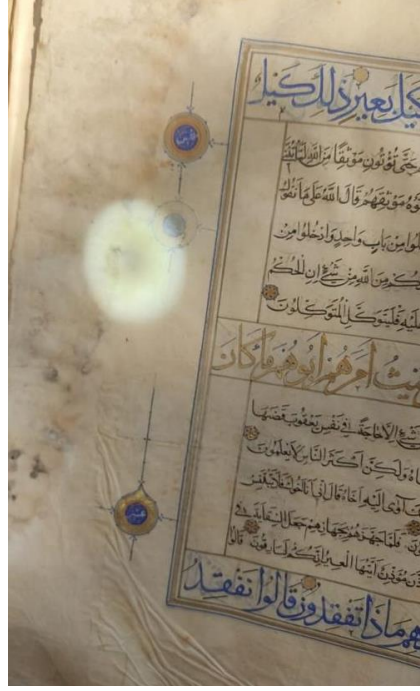 كيل بعير ذلك كيل
حتى تؤتون موثقا من الله لتأتنني
موثقهم قال الله على ما نقول
من باب واحد وادخلوا من
من الله من شيء إن الحكم
فليتوكل المتوكلون
حيث أمرهم أبوهم ما كان
شيء إلا حاجة في نفس يعقوب قضاها
ولكن أكثر الناس لا يعلمون
آوى إليه أخاه قال إني أنا أخوك فلا تبتئس
فلما جهزهم بجهازهم جعل السقاية في
أذن مؤذن أيتها العير إنكم لسارقون قالوا
ماذا تفقدون قالوا نفقد
عشر